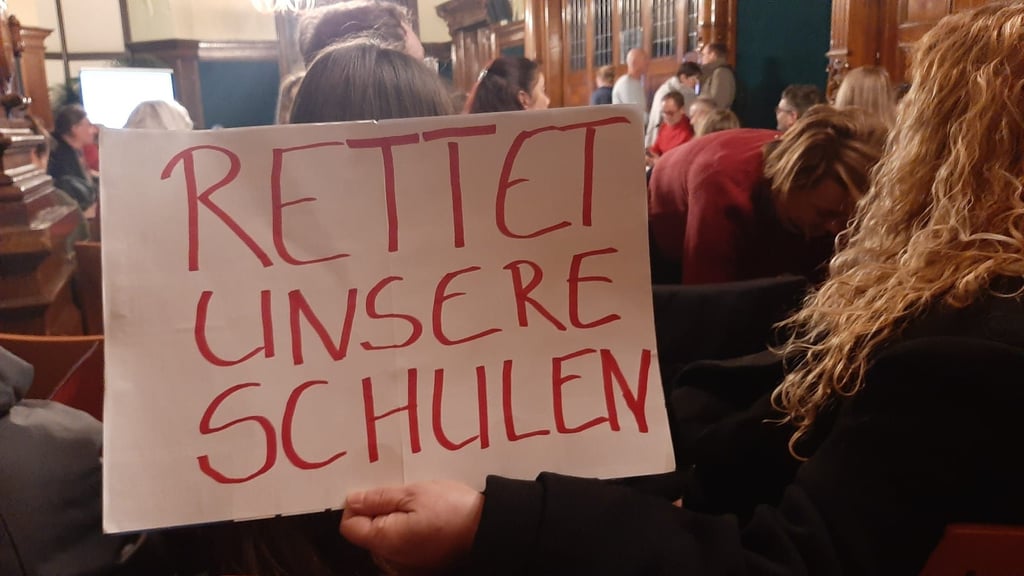 RETTET
UNSERE
SCHULEN